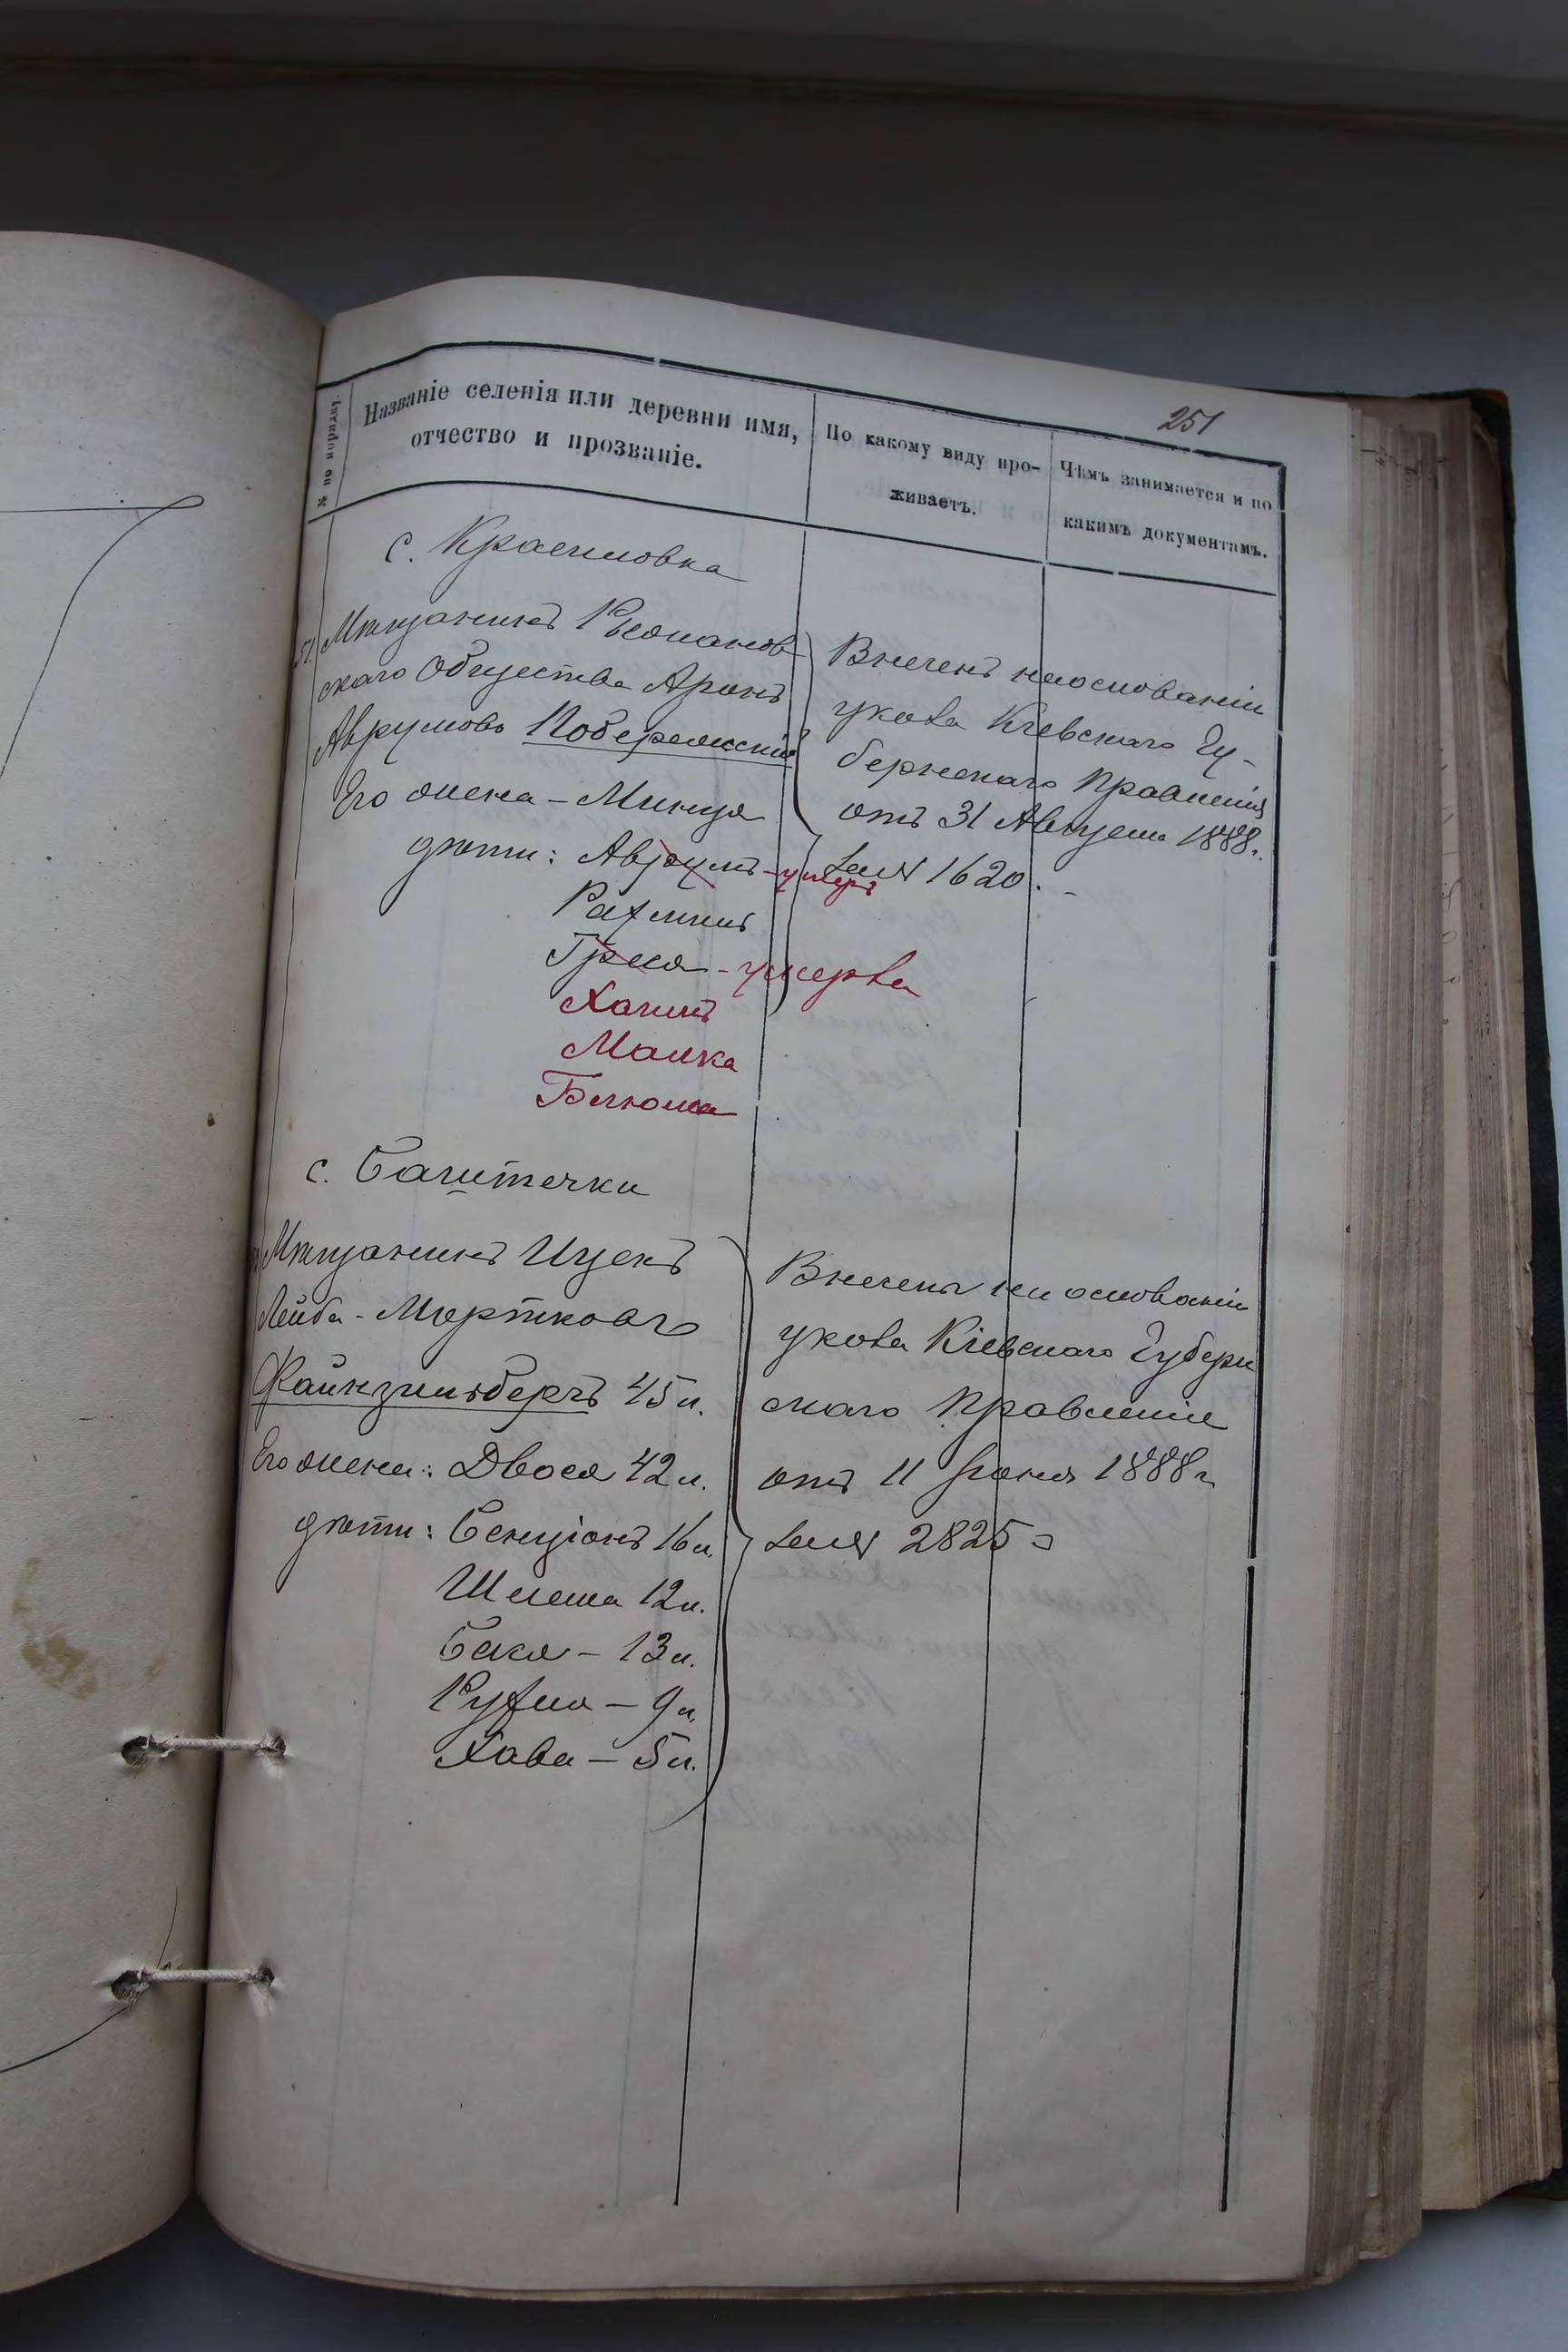 251
№ по порядку.
Названіе селенія или деревни имя,
отчество и прозваніе.
По какому виду про-
живаетъ.
Чѣмъ занимается и по
какимъ документамъ.
с. Красиловка
51. Мѣщанинъ Рьсманов
скаго Общества Аронъ
Аврумовъ Побережскій
Его жена – Минця
дѣти: Аврумъ – умеръ
Рахмиль
Грися – умерла
Хаимъ
Малка
Бенюма
Внесенъ на основаніи
указа Кіевскаго Гу-
бернскаго Правленія
отъ 31 Августа 1888 г.
за № 1620. –
с. Багитечки
Мѣщанинъ Ицекъ
Лейба - Мортковъ
Файнзильберъ 45 л.
Его жена: Двося 42 л.
дѣти: Бенціонъ 16 л.
Шлема 12 л.
Бася – 13 л.
Рухля – 9 л.
Хава – 5 л.
Внесены на основаніи
указа Кіевскаго Губерн
скаго Правленія
отъ 11 Іюня 1888 г.
за № 2825